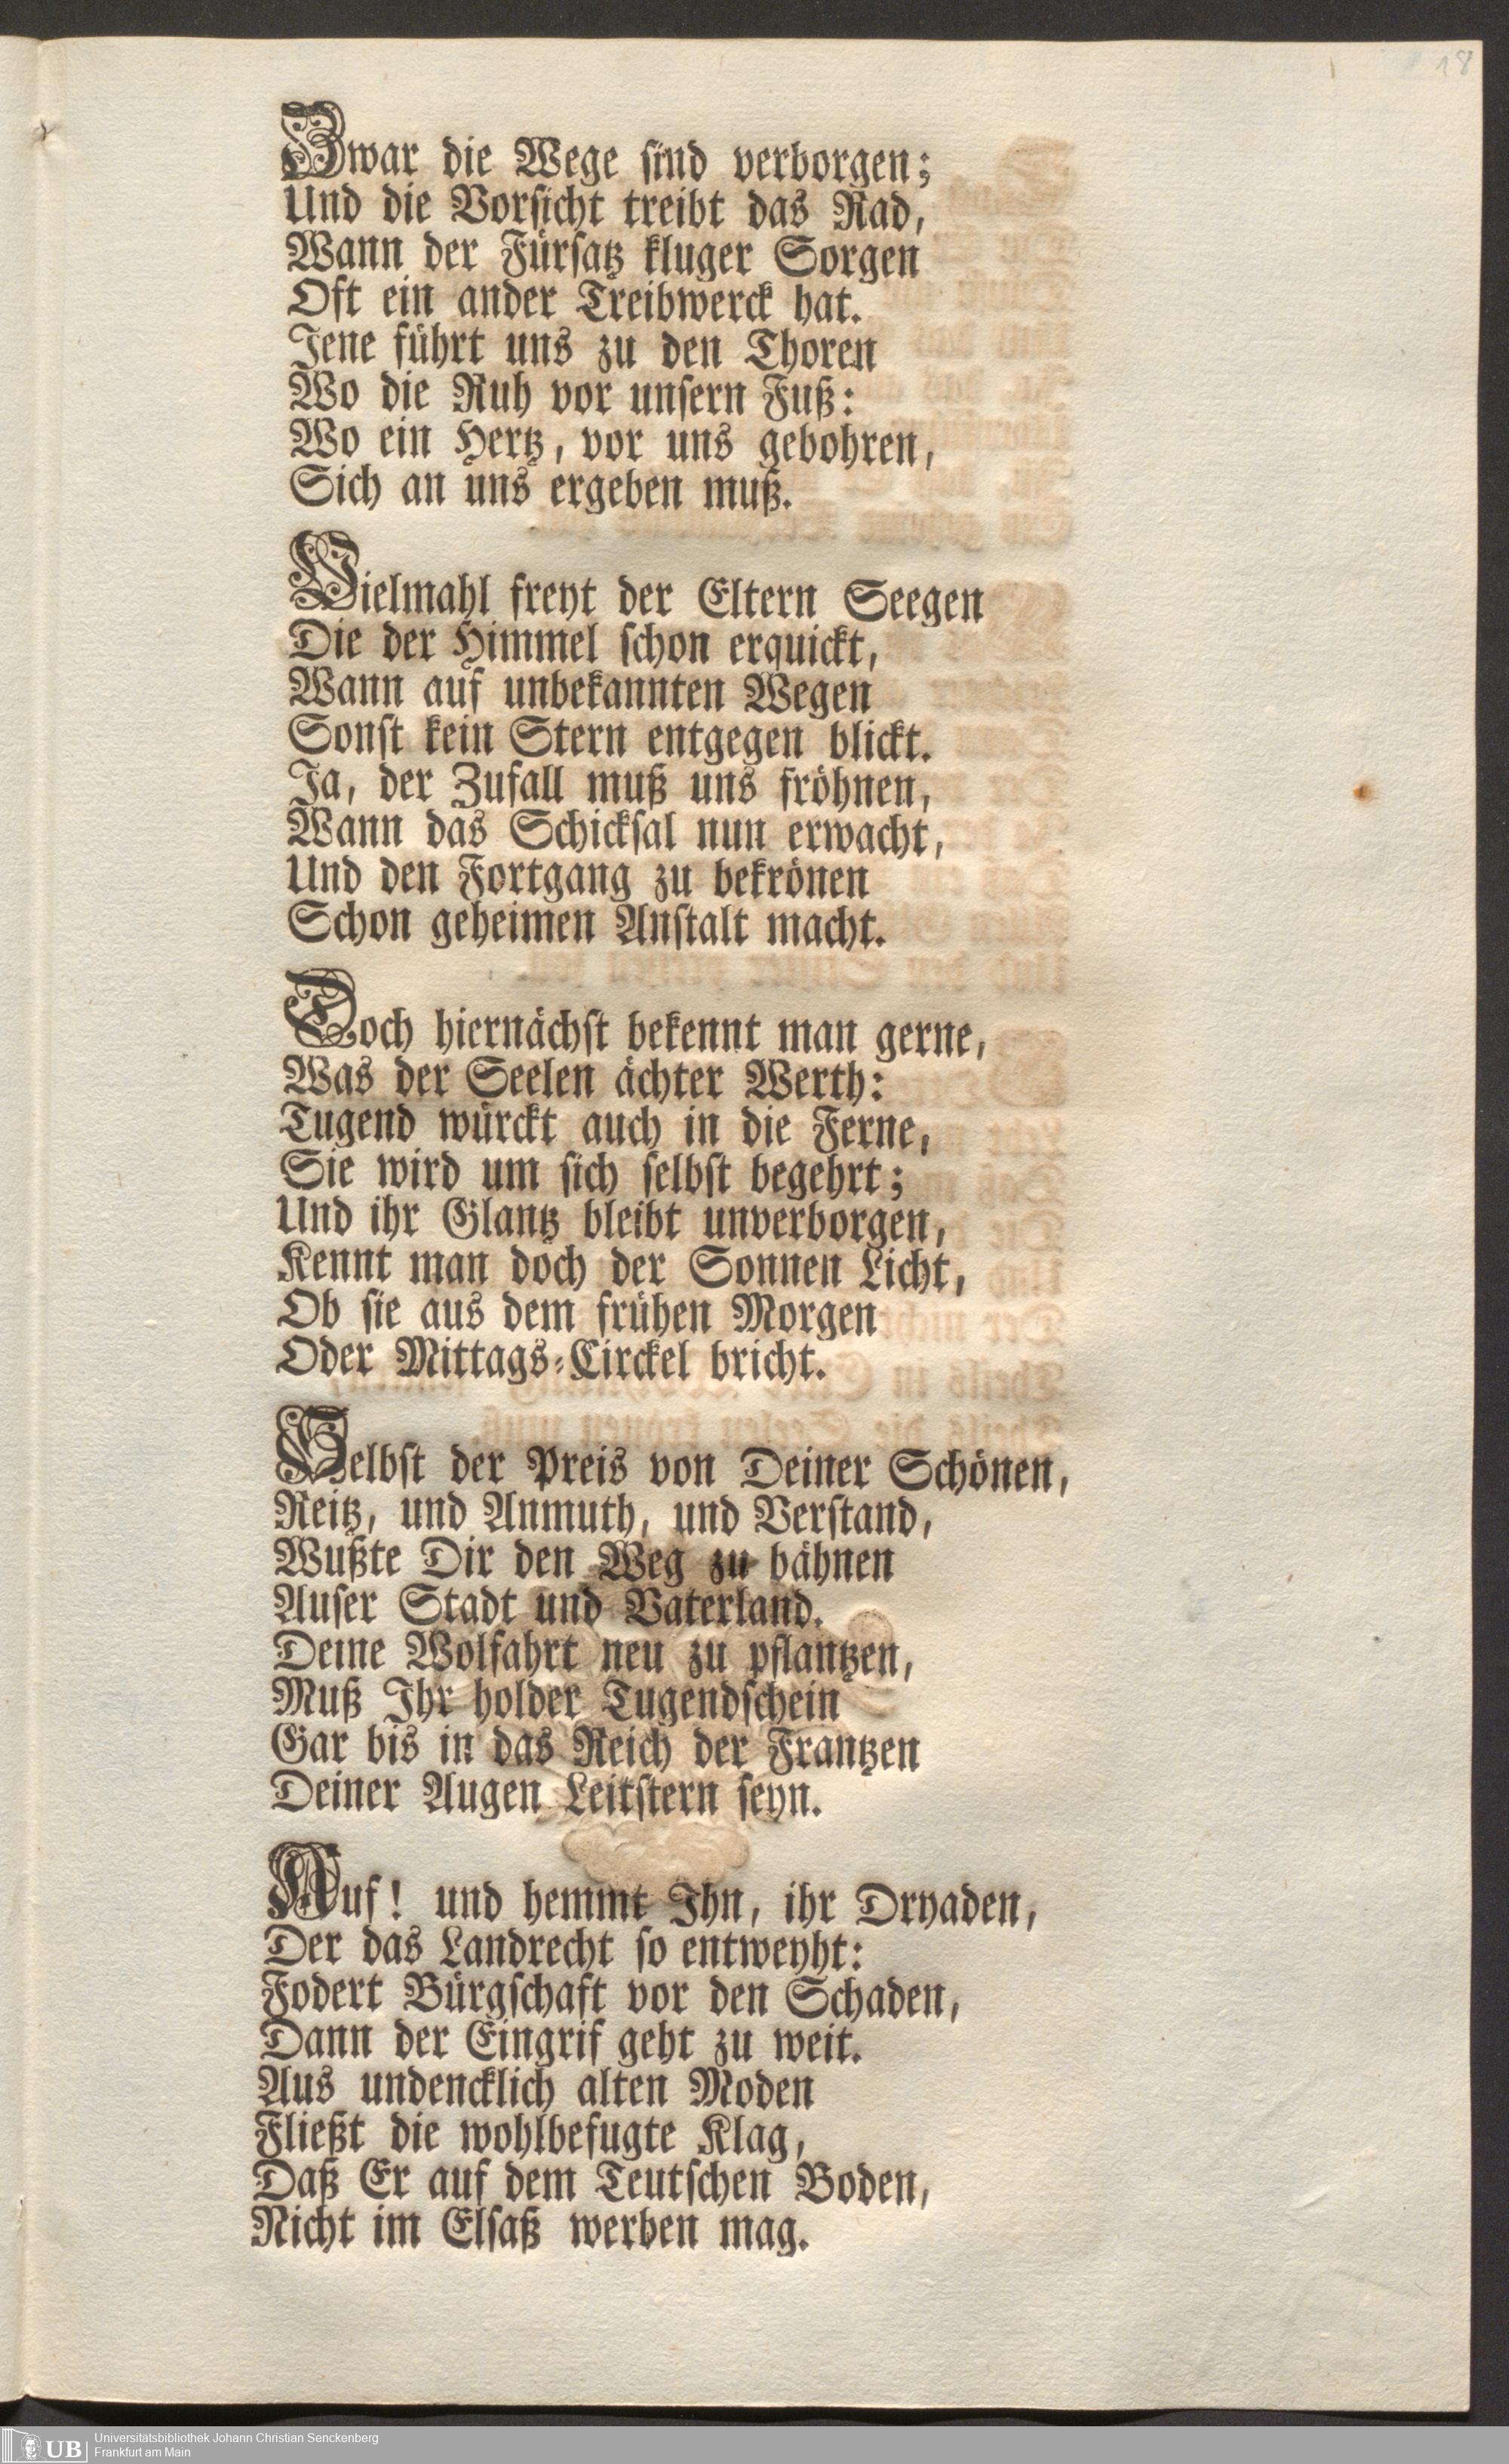 18
Zwar die Wege sind verborgen;
Und die Vorsicht treibt das Rad,
Wann der Fürsatz kluger Sorgen
Oft ein ander Treibwerck hat.
Jene führt uns zu den Thoren
Wo die Ruh vor unsern Fuß:
Wo ein Hertz, vor uns gebohren,
Sich an uns ergeben muß.
Vielmahl freyt der Eltern Seegen
Die der Himmel schon erquickt,
Wann auf unbekannten Wegen
Sonst kein Stern entgegen blickt.
Ja, der Zufall muß uns fröhnen,
Wann das Schicksal nun erwacht,
Und den Fortgang zu bekrönen
Schon geheimen Anstalt macht.
Doch hiernächst bekennt man gerne,
Was der Seelen ächter Werth:
Tugend würckt auch in die Ferne,
Sie wird um sich selbst begehrt;
Und ihr Glantz bleibt unverborgen,
Kennt man doch der Sonnen Licht,
Ob sie aus dem frühen Morgen
Oder Mittags-Circkel bricht.
Selbst der Preis von Deiner Schönen,
Reitz, und Anmuth, und Verstand,
Wußte Dir den Weg zu bähnen
Auser Stadt und Vaterland.
Deine Wolfahrt neu zu pflantzen,
Muß Ihr holder Tugendschein
Gar bis in das Reich der Frantzen
Deiner Augen Leitstern seyn.
Auf! und hemmt Ihn, ihr Dryaden,
Der das Landrecht so entweyht:
Fodert Bürgschaft vor den Schaden,
Dann der Eingrif geht zu weit.
Aus undencklich alten Moden
Fließt die wohlbefugte Klag,
Daß Er auf dem Teutschen Boden,
Nicht im Elsaß werben mag.
UB
Universitätsbibliothek Johann Christian Senckenberg
Frankfurt am Main